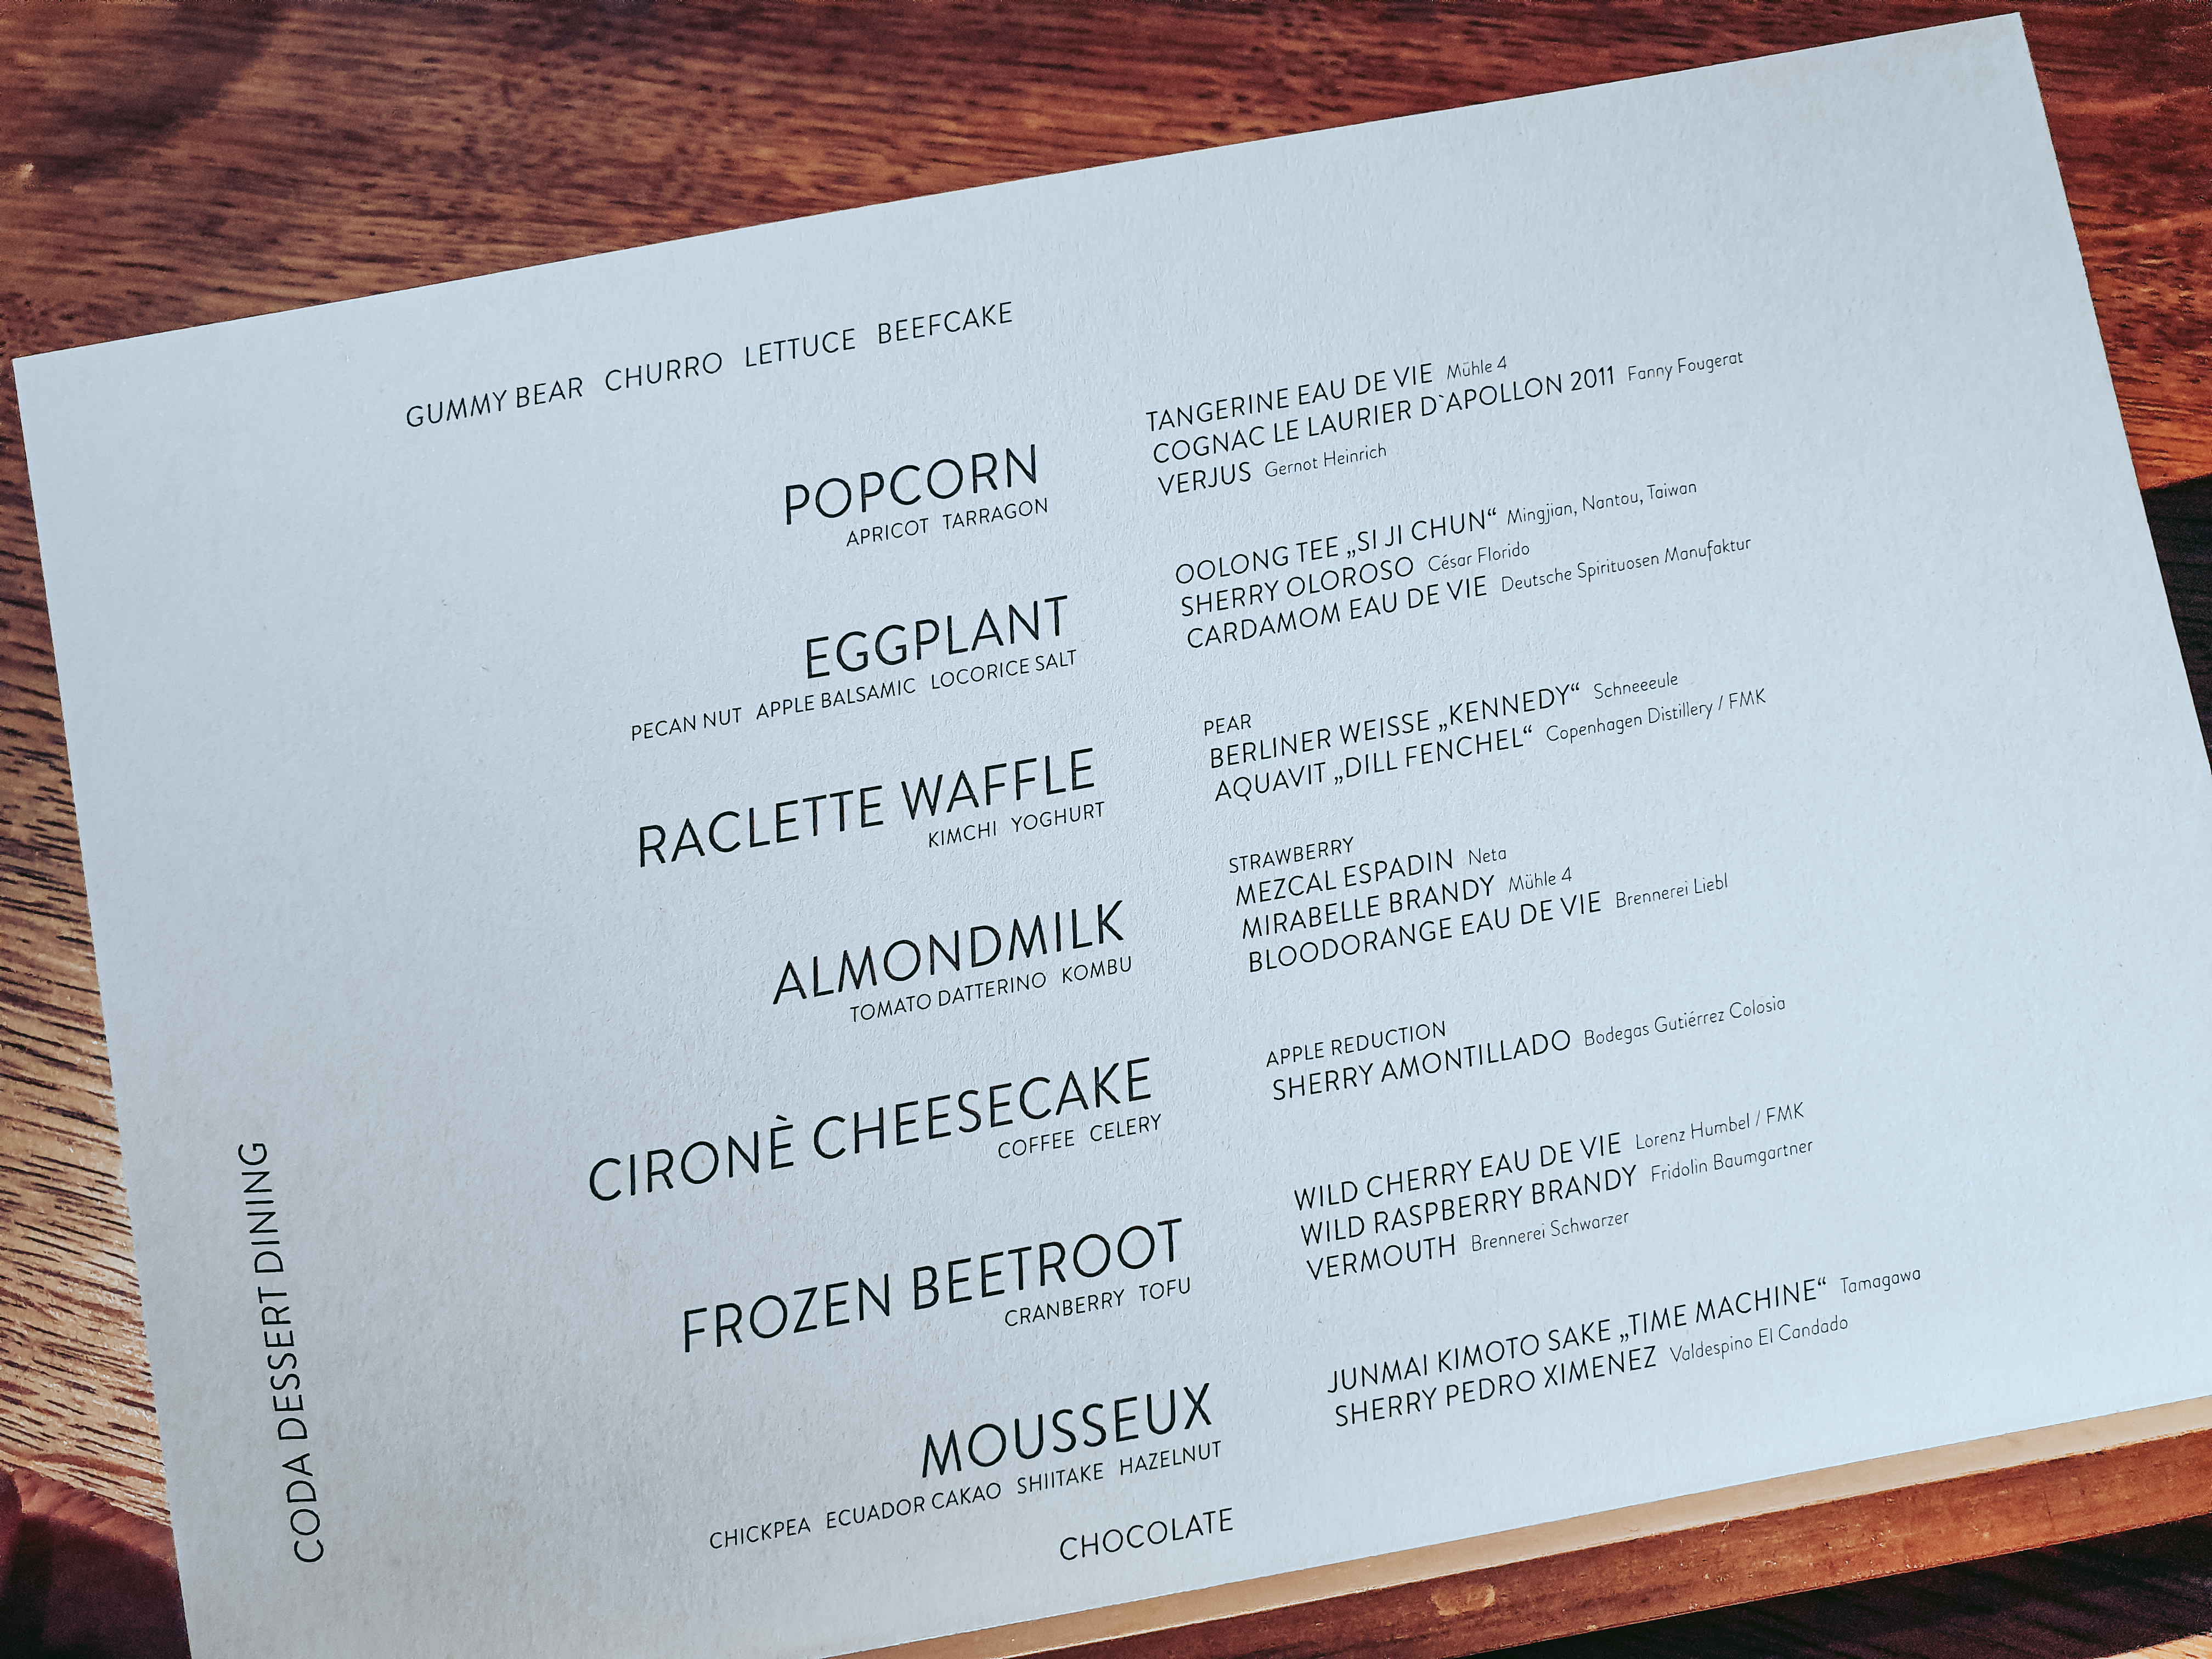 GUMMY BEAR CHURRO LETTUCE BEEFCAKE
POPCORN
APRICOT TARRAGON
TANGERINE EAU DE VIE Mühle 4
COGNAC LE LAURIER D`APOLLON 2011 Fanny Fougerat
VERJUS Gernot Heinrich
EGGPLANT
PECAN NUT APPLE BALSAMIC LOCORICE SALT
OOLONG TEE „SI JI CHUN“ Mingjian, Nantou, Taiwan
SHERRY OLOROSO César Florido
CARDAMOM EAU DE VIE Deutsche Spirituosen Manufaktur
RACLETTE WAFFLE
KIMCHI YOGHURT
PEAR
BERLINER WEISSE „KENNEDY“ Schneeeule
AQUAVIT „DILL FENCHEL“ Copenhagen Distillery / FMK
ALMONDMILK
TOMATO DATTERINO KOMBU
STRAWBERRY
MEZCAL ESPADIN Neta
MIRABELLE BRANDY Mühle 4
BLOODORANGE EAU DE VIE Brennerei Liebl
CIRONÈ CHEESECAKE
COFFEE CELERY
APPLE REDUCTION
SHERRY AMONTILLADO Bodegas Gutiérrez Colosia
FROZEN BEETROOT
CRANBERRY TOFU
WILD CHERRY EAU DE VIE Lorenz Humbel / FMK
WILD RASPBERRY BRANDY Fridolin Baumgartner
VERMOUTH Brennerei Schwarzer
MOUSSEUX
CHICKPEA ECUADOR CAKAO SHIITAKE HAZELNUT
JUNMAI KIMOTO SAKE „TIME MACHINE“ Tamagawa
SHERRY PEDRO XIMENEZ Valdespino El Candado
CHOCOLATE
CODA DESSERT DINING